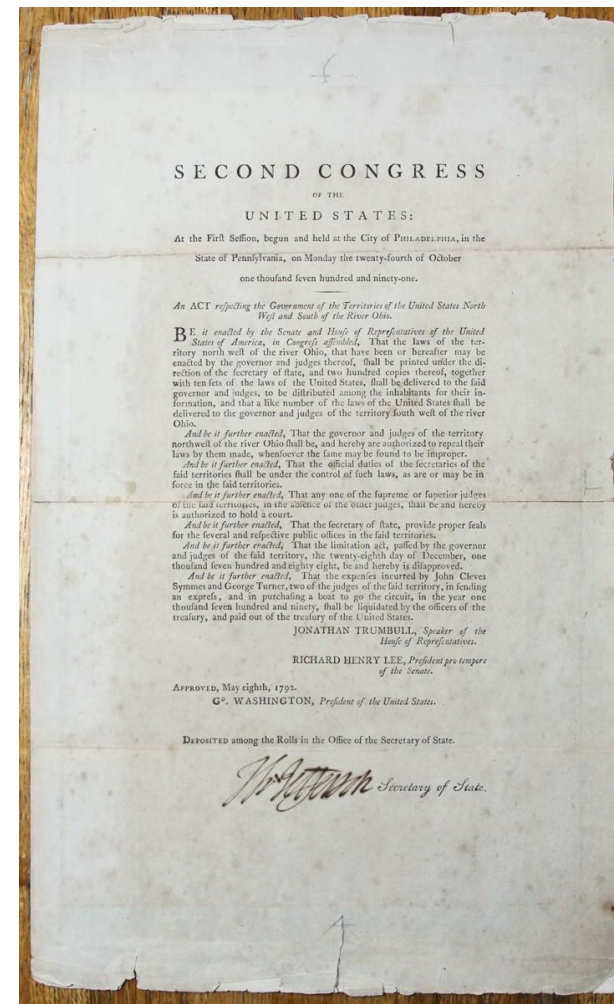 SECOND CONGRESS
OF THE
UNITED STATES:
At the Firſt Seſſion, begun and held at the City of PHILADELPHIA, in the
State of Pennſylvania, on Monday the twenty-fourth of October
one thouſand ſeven hundred and ninety-one.
An ACT reſpecting the Government of the Territories of the United States North
Weſt and South of the River Ohio.
BE it enacted by the Senate and Houſe of Repreſentatives of the United
States of America, in Congreſs aſſembled, That the laws of the ter-
ritory north weſt of the river Ohio, that have been or hereafter may be
enacted by the governor and judges thereof, ſhall be printed under the di-
rection of the ſecretary of ſtate, and two hundred copies thereof, together
with ten ſets of the laws of the United States, ſhall be delivered to the ſaid
governor and judges, to be diſtributed among the inhabitants for their in-
formation, and that a like number of the laws of the United States ſhall be
delivered to the governor and judges of the territory ſouth weſt of the river
Ohio.
And be it further enacted, That the governor and judges of the territory
northweſt of the river Ohio ſhall be, and hereby are authorized to repeal their
laws by them made, whenſoever the ſame may be found to be improper.
And be it further enacted, That the official duties of the ſecretaries of the
ſaid territories ſhall be under the control of ſuch laws, as are or may be in
force in the ſaid territories.
And be it further enacted, That any one of the ſupreme or ſuperior judges
of the ſaid territories, in the abſence of the other judges, ſhall be and hereby
is authorized to hold a court.
And be it further enacted, That the ſecretary of ſtate, provide proper ſeals
for the ſeveral and reſpective public offices in the ſaid territories.
And be it further enacted, That the limitation act, paſſed by the governor
and judges of the ſaid territory, the twenty-eighth day of December, one
thouſand ſeven hundred and eighty eight, be and hereby is diſapproved.
And be it further enacted, That the expenſes incurred by John Cleves
Symmes and George Turner, two of the judges of the ſaid territory, in ſending
an expreſs, and in purchaſing a boat to go the circuit, in the year one
thouſand ſeven hundred and ninety, ſhall be liquidated by the officers of the
treaſury, and paid out of the treaſury of the United States.
JONATHAN TRUMBULL, Speaker of the
Houſe of Repreſentatives.
RICHARD HENRY LEE, Preſident pro tempore
of the Senate.
APPROVED, May eighth, 1792.
Go. WASHINGTON, Preſident of the United States.
DEPOSITED among the Rolls in the Office of the Secretary of State.
Th: Jefferson Secretary of State.